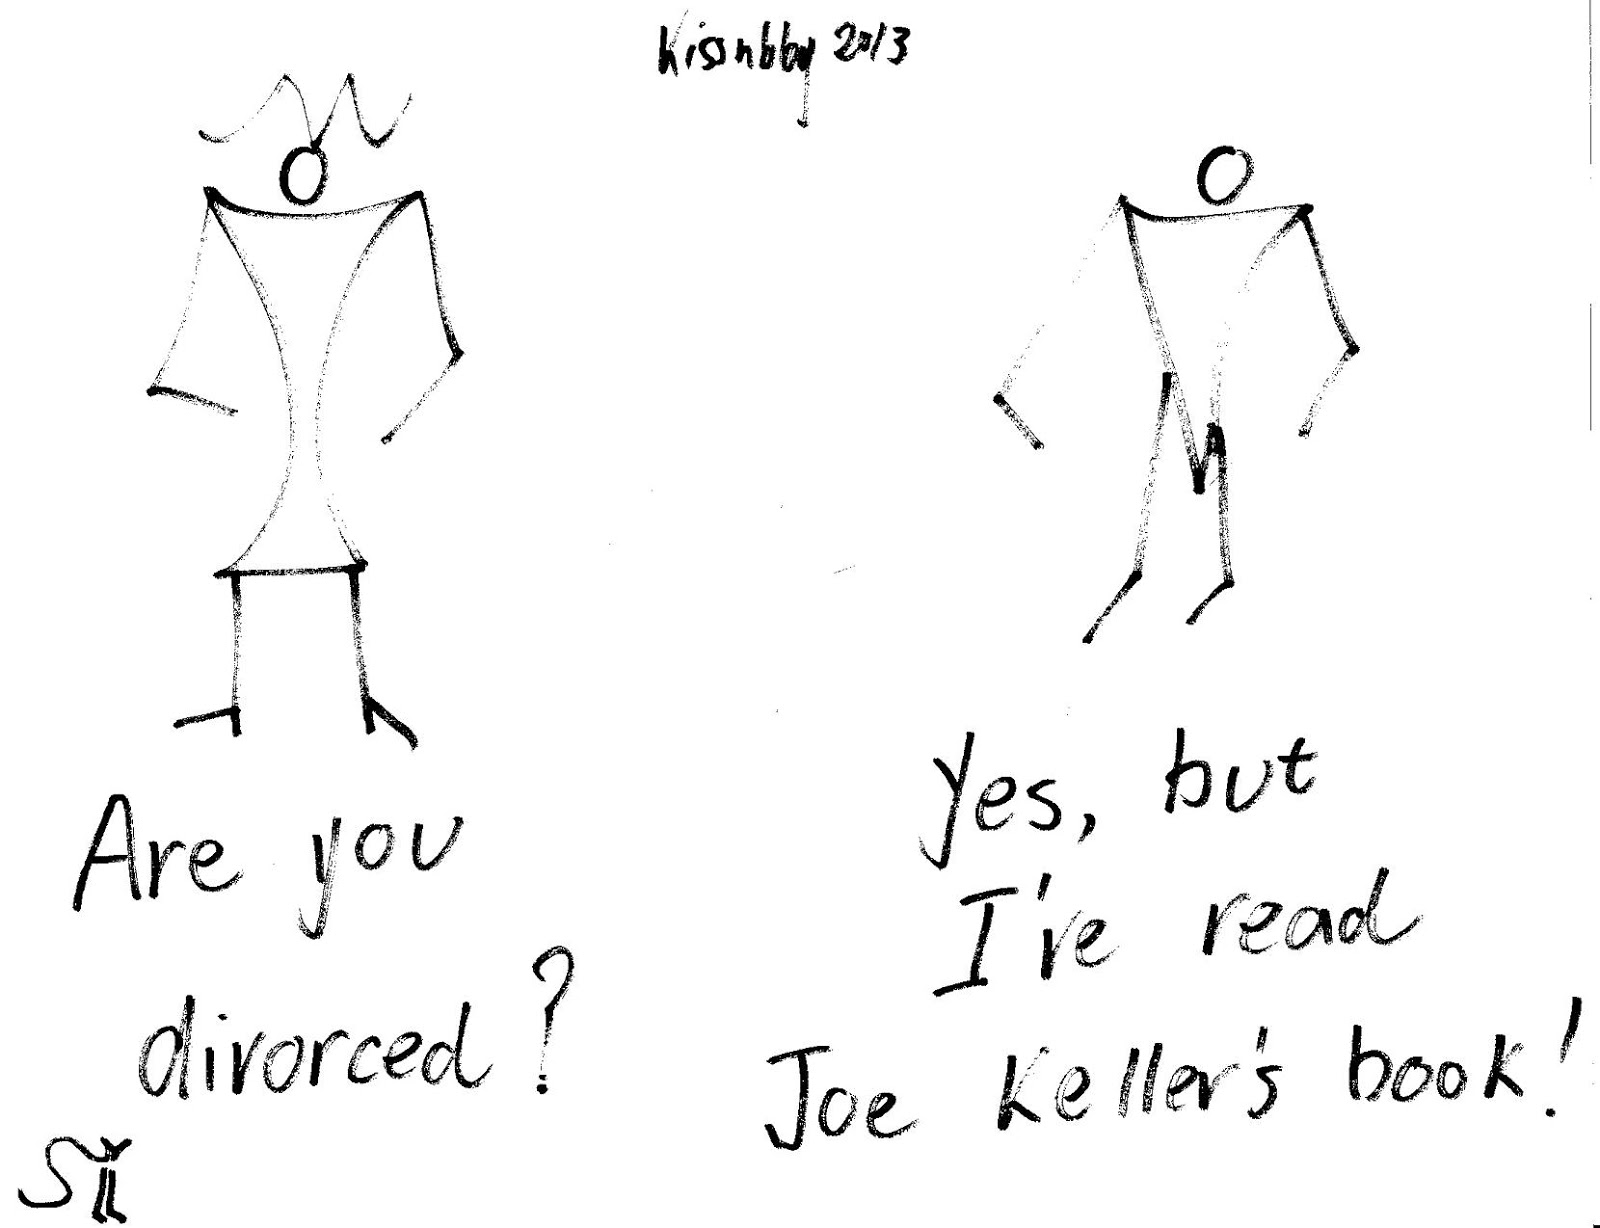 Kissnbby 2013
Are you
divorced?
Yes, but
I've read
Joe Keller's book!